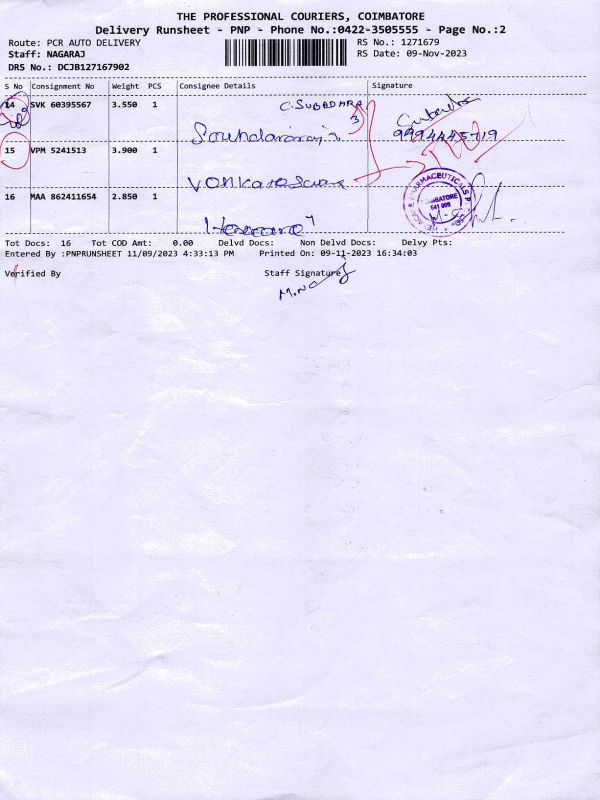 THE PROFESSIONAL COURIERS, COIMBATORE
Delivery Runsheet - PNP - Phone No.:0422-3505555 - Page No.:2
Route: PCR AUTO DELIVERY RS No.: 1271679
Staff: NAGARAJ RS Date: 09-Nov-2023
DRS No.: DCJB127167902
S No Consignment No Weight PCS Consignee Details Signature
14 SVK 60395567 3.550 1 C. SUBADHRA
9994445719
15 VPM 5241513 3.900 1
16 MAA 862411654 2.850 1
COIMBATORE
641 009
Tot Docs: 16 Tot COD Amt: 0.00 Delvd Docs: Non Delvd Docs: Delvy Pts:
Entered By :PNPRUNSHEET 11/09/2023 4:33:13 PM Printed On: 09-11-2023 16:34:03
Verified By Staff Signature